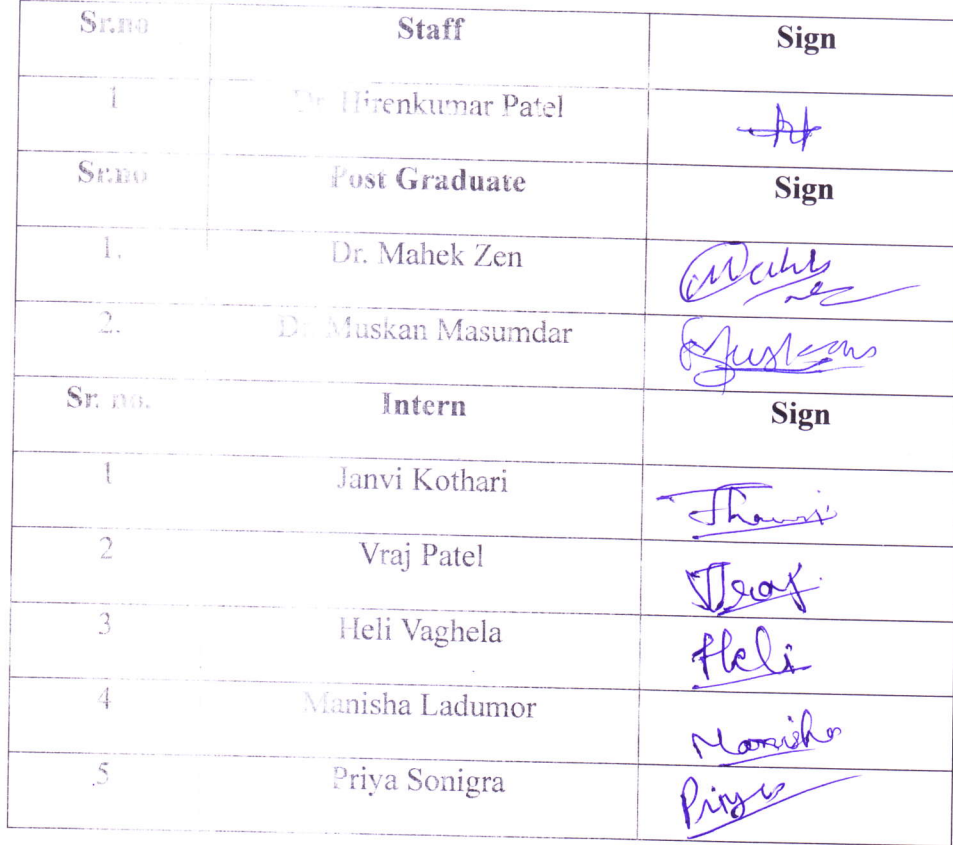 Sr.no Staff Sign
1 Dr. Hirenkumar Patel
Sr.no Post Graduate Sign
1. Dr. Mahek Zen
2. Dr. Muskan Masumdar Muskan
Sr. no. Intern Sign
1 Janvi Kothari
2 Vraj Patel Vraj
3 Heli Vaghela Heli
4 Manisha Ladumor Manisha
5 Priya Sonigra Priya